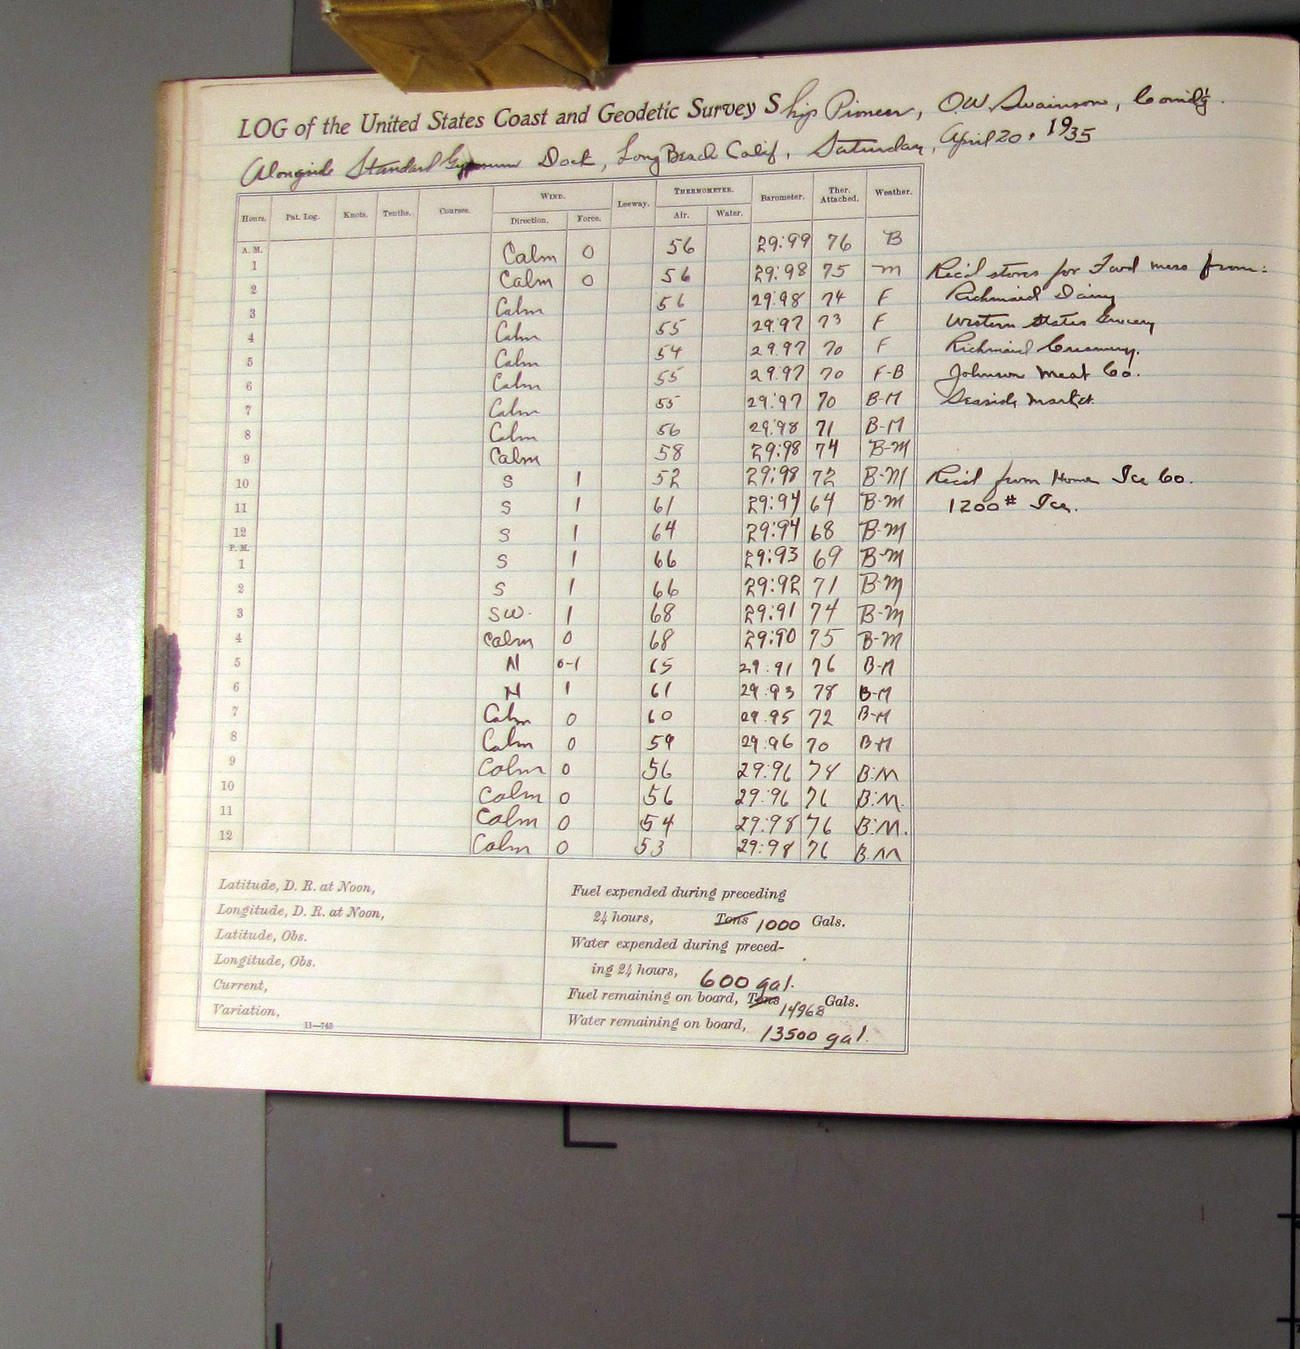 LOG of the United States Coast and Geodetic Survey Ship Pioneer, O.W. Swainson, Comd'g.
Alongside Standard Gypsum Dock, Long Beach Calif., Saturday, April 20, 1935
Hours. Pat. Log. Knots. Tenths. Courses. WIND. Leeway. THERMOMETER. Barometer. Ther. Attached. Weather.
Direction. Force. Air. Water.
A. M.
1 Calm 0 56 29:99 76 B
2 Calm 0 56 29:98 75 m Rec'd stores for Fwd mess from:
3 Calm 56 29:98 74 F Richmaid Dairy
4 Calm 55 29:97 73 F Western States Grocery
5 Calm 54 29.97 70 F Richmaid Creamery.
6 Calm 55 29.97 70 F-B Johnson Meat Co.
7 Calm 55 29:97 70 B-M Seaside Market.
8 Calm 56 29:98 71 B-M
9 Calm 58 29:98 74 B-M
10 S 1 52 29:98 72 B-M Rec'd from Home Ice Co.
11 S 1 61 29:94 64 B-M 1200# Ice.
12 S 1 64 29:94 68 B-M
P. M.
1 S 1 66 29:93 69 B-M
2 S 1 66 29:92 71 B-M
3 SW. 1 68 29:91 74 B-M
4 Calm 0 68 29:90 75 B-M
5 N 0-1 65 29.91 76 B-M
6 N 1 61 29.93 78 B-M
7 Calm 0 60 29.95 72 B-M
8 Calm 0 59 29.96 70 B-M
9 Calm 0 56 29:96 78 B.M
10 Calm 0 56 29:96 76 B.M.
11 Calm 0 54 29:98 76 B.M.
12 Calm 0 53 29:98 76 B.M
Latitude, D. R. at Noon,
Longitude, D. R. at Noon,
Latitude, Obs.
Longitude, Obs.
Current,
Variation,
11—743
Fuel expended during preceding
24 hours, Tons 1000 Gals.
Water expended during preced-
ing 24 hours, 600 gal.
Fuel remaining on board, Tons 14968 Gals.
Water remaining on board, 13500 gal.